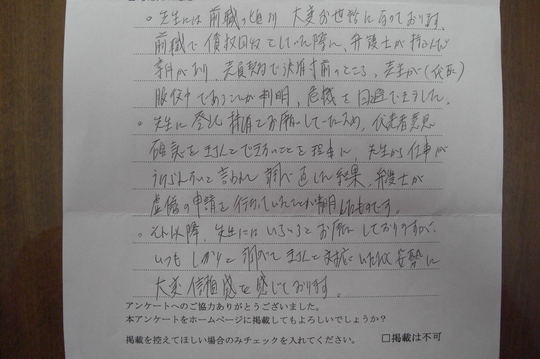 ○先生には前職の頃より大変お世話になっております。
前職で債権回収をしていた際に、弁護士が
事件があり、売買契約で決済寸前のところ、売主が(代取)
服役中であることが判明、危機を回避できました。
○先生に登記 お願いしていたため、代表者意思
確認をきちんとできないことを理由に、先生から仕事が
うけられないと言われ調べ直した結果、弁護士が
虚偽の申請を行っていたことが判明したものです。
○それ以降、先生にはいろいろとお願いしておりますが、
いつもしっかりと調べてきちんと対応いただく姿勢に
大変信頼感を感じております。
アンケートへのご協力ありがとうございました。
本アンケートをホームページに掲載してもよろしいでしょうか?
掲載を控えてほしい場合のみチェックを入れてください。 □掲載は不可